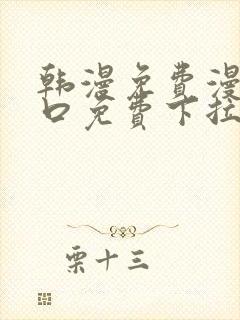 韩漫免费漫
口免费下拉
栗十三